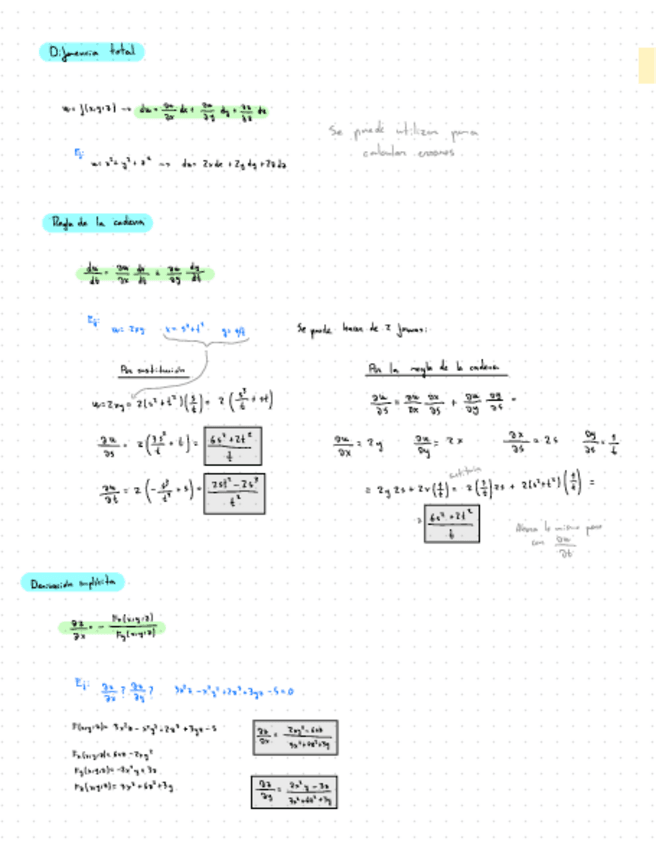 Diferencia total
w = f(x,y,z) → dw = ∂w/∂x dx + ∂w/∂y dy + ∂w/∂z dz
Se puede utilizar para
calcular errores
Ej:
w = x² + y² + z² → dw = 2xdx + 2ydy + 2zdz
Regla de la cadena
dw/dt = ∂w/∂x dx/dt + ∂w/∂y dy/dt
Ej: w = 2xy x = s² + t² y = s/t
Se puede hacer de 2 formas:
Por sustitución
w = 2xy = 2(s² + t²)(s/t) = 2(s³/t + st)
∂w/∂s = 2(3s²/t + t) = 6s² + 2t²/t
∂w/∂t = 2(-s³/t² + s) = 2st² - 2s³/t²
Por la regla de la cadena
∂w/∂s = ∂w/∂x ∂x/∂s + ∂w/∂y ∂y/∂s =
∂w/∂x = 2y ∂w/∂y = 2x ∂x/∂s = 2s ∂y/∂s = 1/t
= 2y 2s + 2x(1/t) = 2(s/t)2s + 2(s² + t²)(1/t) =
= 6s² + 2t²/t
lo mismo para
con ∂w/∂t
Derivación implícita
∂z/∂x = - Fx(x,y,z)/Fy(x,y,z)
Ej: ∂z/∂x? ∂z/∂y? 3x²z - x²y² + 2z³ + 3yz - 5 = 0
F(x,y,z) = 3x²z - x²y² + 2z³ + 3yz - 5
Fx(x,y,z) = 6xz - 2xy²
Fy(x,y,z) = -2x²y + 3z
Fz(x,y,z) = 3x² + 6z² + 3y
∂z/∂x = 2xy² - 6xz/3x² + 6z² + 3y
∂z/∂y = 2x²y - 3z/3x² + 6z² + 3y